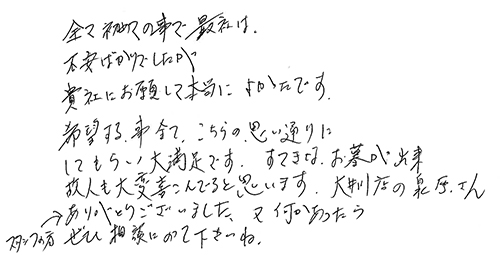 全て初めての事で最初は、
不安ばかりでしたが
貴社にお願して本当によかたです。
希望する事全て、こちらの思い通りに
してもらい大満足です。すてきなお墓が出来
故人も大変喜こんでると思います。大判店の泉原さん
→ありがとうございました、又何かあったら
スタッフの方 ぜひ相談にのて下さいね。